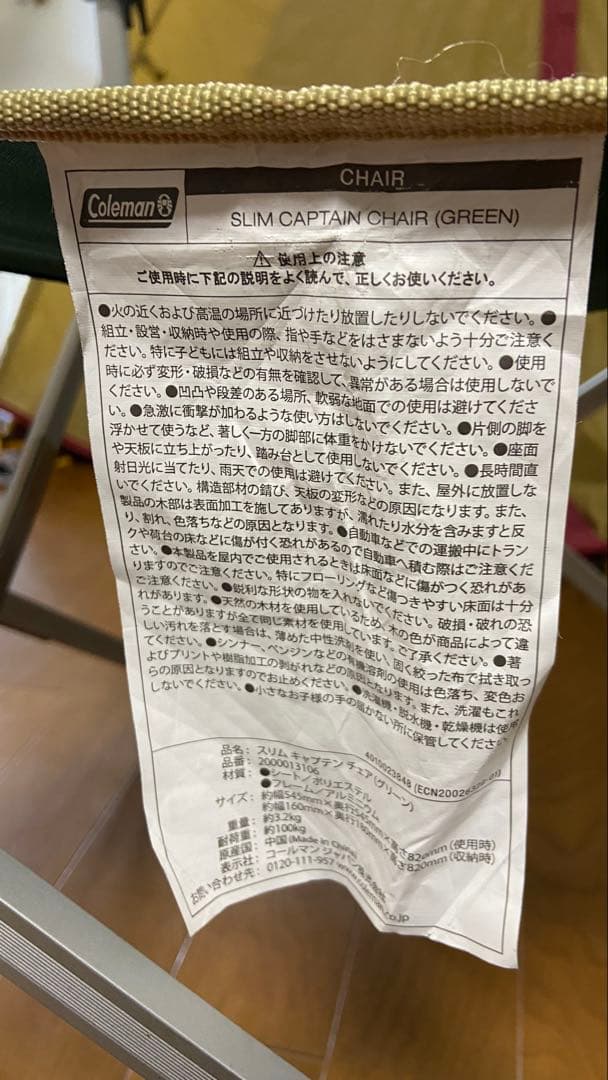 CHAIR
Coleman
SLIM CAPTAIN CHAIR (GREEN)
⚠ 使用上の注意
ご使用時に下記の説明をよく読んで、正しくお使いください。
●火の近くおよび高温の場所に近づけたり放置したりしないでください。●
組立・設営・収納時や使用の際、指や手などをはさまないよう十分ご注意く
ださい。特に子どもには組立や収納をさせないようにしてください。●使用
時に必ず変形・破損などの有無を確認して、異常がある場合は使用しないで
ください。●凹凸や段差のある場所、軟弱な地面での使用は避けてくださ
い。●急激に衝撃が加わるような使い方はしないでください。●片側の脚を
浮かせて使うなど、著しく一方の脚部に体重をかけないでください。●座面
や天板に立ち上がったり、踏み台として使用しないでください。●長時間直
射日光に当てたり、雨天での使用は避けてください。また、屋外に放置しな
いでください。構造部材の錆び、天板の変形などの原因になります。また、
製品の木部は表面加工を施してありますが、濡れたり水分を含みますと反
り、割れ、色落ちなどの原因となります。●自動車などでの運搬中にトラン
クや荷台の床などに傷が付く恐れがあるので自動車へ積む際はご注意くだ
さい。●本製品を屋内でご使用されるときは床面などに傷がつく恐れがあ
りますのでご注意ください。特にフローリングなど傷つきやすい床面は十分
ご注意ください。●鋭利な形状の物を入れないでください。破損・破れの恐
れがあります。●天然の木材を使用しているため、木の色が商品によって違
うことがありますが全て同じ素材を使用しています。ご了承ください。●著
しい汚れを落とす場合は、薄めた中性洗剤を使い、固く絞った布で拭き取っ
てください。●シンナー、ベンジンなどの有機溶剤の使用は色落ち、変色お
よびプリントや樹脂加工の剥がれなどの原因となります。また、洗濯もこれ
らの原因となりますのでお止めください。●洗濯機・脱水機・乾燥機は使用
しないでください。●小さなお子様の手の届かない所に保管してください。
4010023848
品名：スリム キャプテン チェア(グリーン)
品番：2000013106
材質：●シート/ポリエステル
●フレーム/アルミニウム
サイズ：約幅545mm×奥行545mm×高さ820mm(使用時)
約幅160mm×奥行190mm×高さ820mm(収納時)
重量：約3.2kg
耐荷重：約100kg
原産国：中国(Made in China)
表示社：コールマン ジャパン株式会社
お問い合わせ先：0120-111-957 www.coleman.co.jp